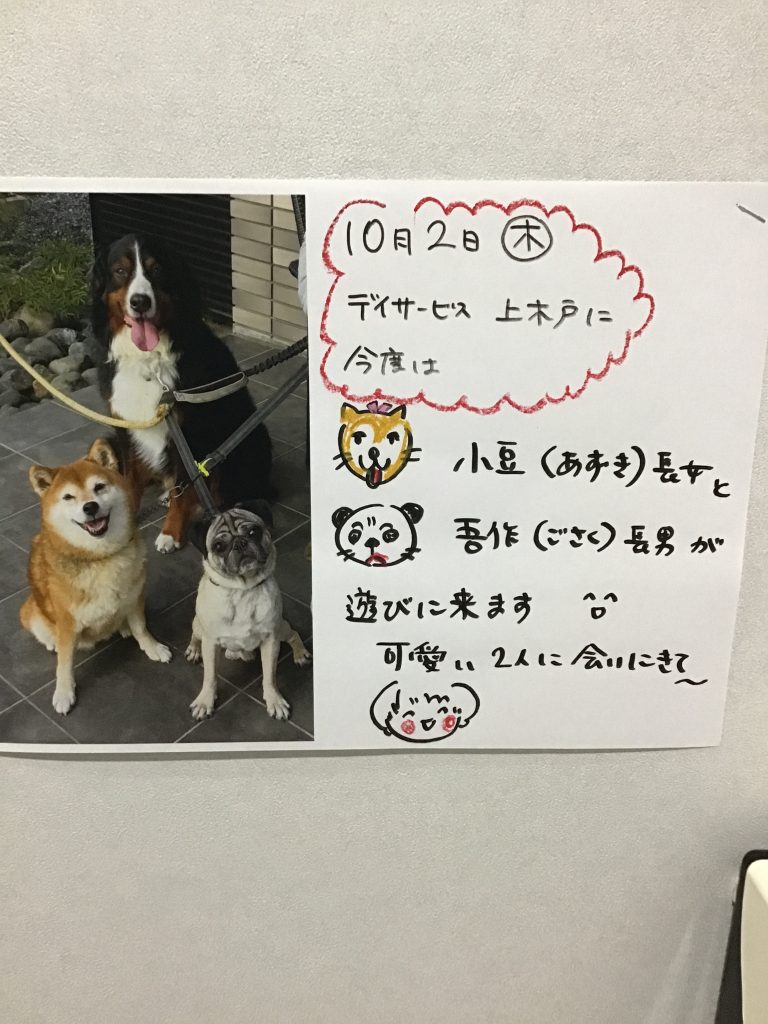 10月2日 木
デイサービス 上木戸に
今度は
小豆(あずき)長女と
吾作(ごさく)長男が
遊びに来ます ^o^
可愛い 2人に 会いにきて〜